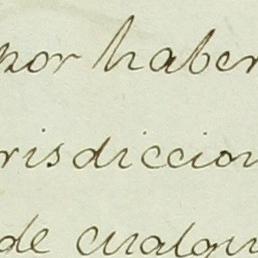 por haber
risdiccion
de cualqui